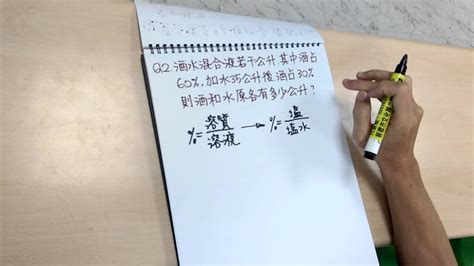 Q2.酒水混合液若干公升,其中酒占
60%,加水35公升後,酒占30%
則酒和水原各有多少公升?
%=溶質/溶液 → %=鹽/鹽水